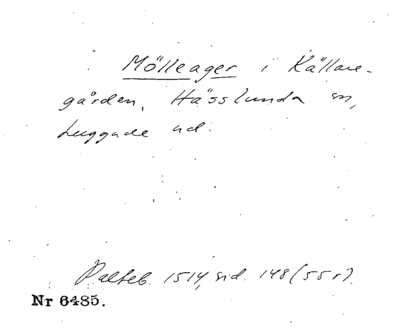 Mölleager i Källare-
gården, Hässlunda sn,
Luggude hd.
Palteb. 1514, sid. 148 (55 r).
Nr 6485.